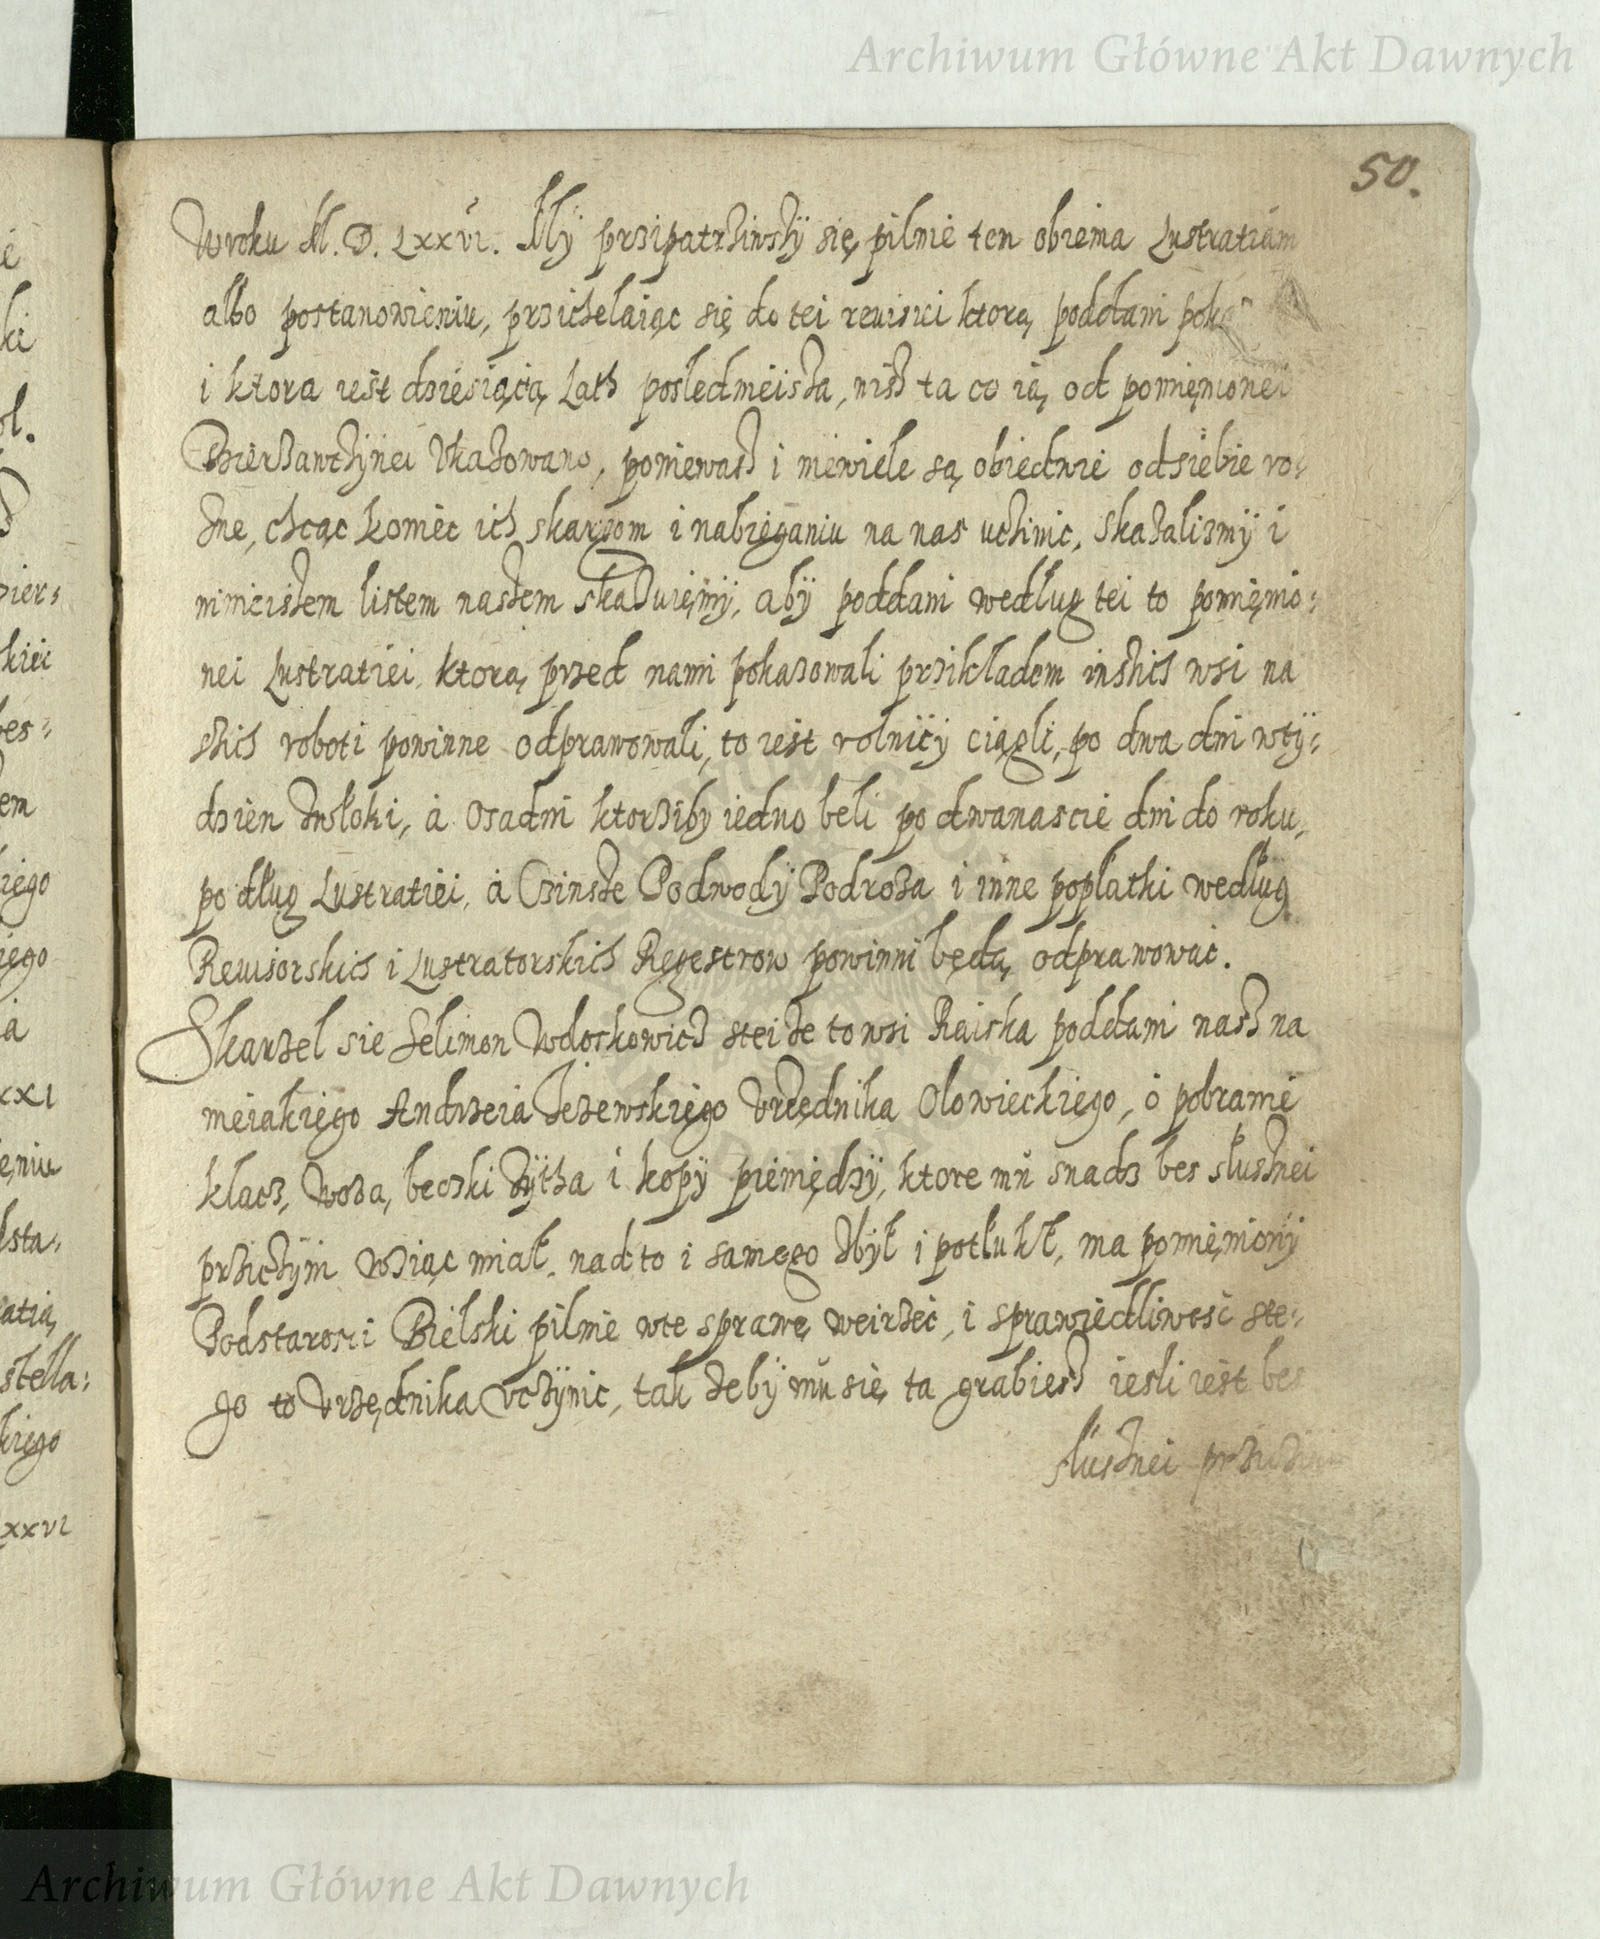 Archiwum Główne Akt Dawnych
50.
W roku M. D. LXXVI. My przipatrziwszÿ się pilnie ten obiema Lustratiam
albo postanowieniu, przichelaiąc się do tei reuisiei ktorą poddani
i ktora iest dziesiącią Lath poslednieisza, nisz ta co ią od pomięnionei
Dzierzawczÿnei Ukazowano, poniewasz i niewiele są obiedwie od siebie ro:
zne, chcąc koniec ich skargom i nabieganiu na nas uczinic, skazalismÿ i
ninieiszem listem naszem skazuiemÿ, abÿ poddani według tei to pomięnio:
nei Lustratiei, ktorą przed nami pokazowali przikładem inszich wsi na
szich roboti powinne odprawowali, to iest rolnicÿ ciągli, po dwa dni w tÿ:
dzien zwłoki, a Osadni ktorziby iedno beli po dwanascie dni do roku,
podług Lustratiei, a Czinsze Podwodÿ Podroza i inne popłatki według
Reuisorskich i Lustratorskich Regestrow powinni będą odprawowac.
Skarzel sie Selimon Wdoskowicz steize to wsi Raiska poddani nasz na
nieiakiego Andrzeia Jezewskięgo Urzędnika Olowieckiego, o pobranie
klacz, woza, beczki zÿtha i kopÿ pieniędzÿ, ktore mu snadz bes slusznei
przicżÿni wziąc miał, nad to i samego zbÿł i potłukł, ma pomięnionÿ
Podstarosci Bielski pilnie w te sprawę weirzec, i sprawiedliwosc ste:
go to Urzędnika Uczÿnic, tak zebÿ mu się ta grabiesz iesli iest bes
slusznei
Archiwum Główne Akt Dawnych